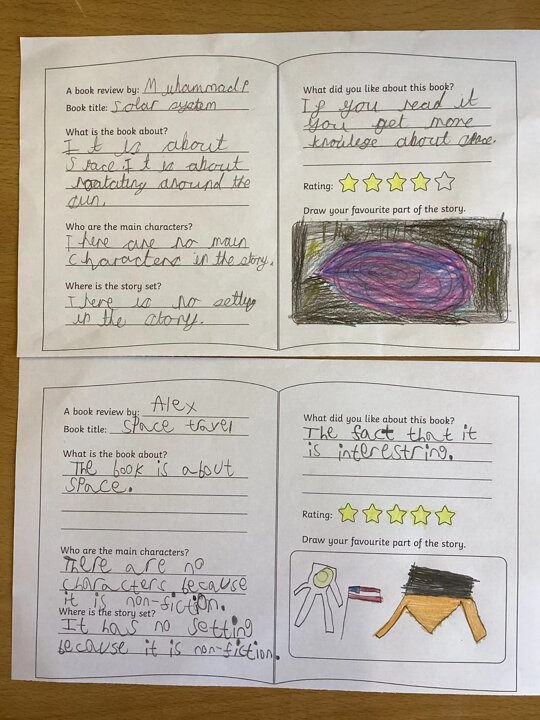 A book review by: Muhammad P
Book title: Solar system
What is the book about?
It is about
Space. It is about
roatating around the
sun.
Who are the main characters?
There are no main
Characters in the story.
Where is the story set?
There is no setting
in the story.
What did you like about this book?
If you read it
you get more
knowlege about space.
Rating:
Draw your favourite part of the story.
A book review by: Alex
Book title: space travel
What is the book about?
The book is about
space.
Who are the main characters?
There are no
characters because
it is non-fiction.
Where is the story set?
It has no setting
because it is non-fiction.
What did you like about this book?
The fact that it
is interestring.
Rating:
Draw your favourite part of the story.